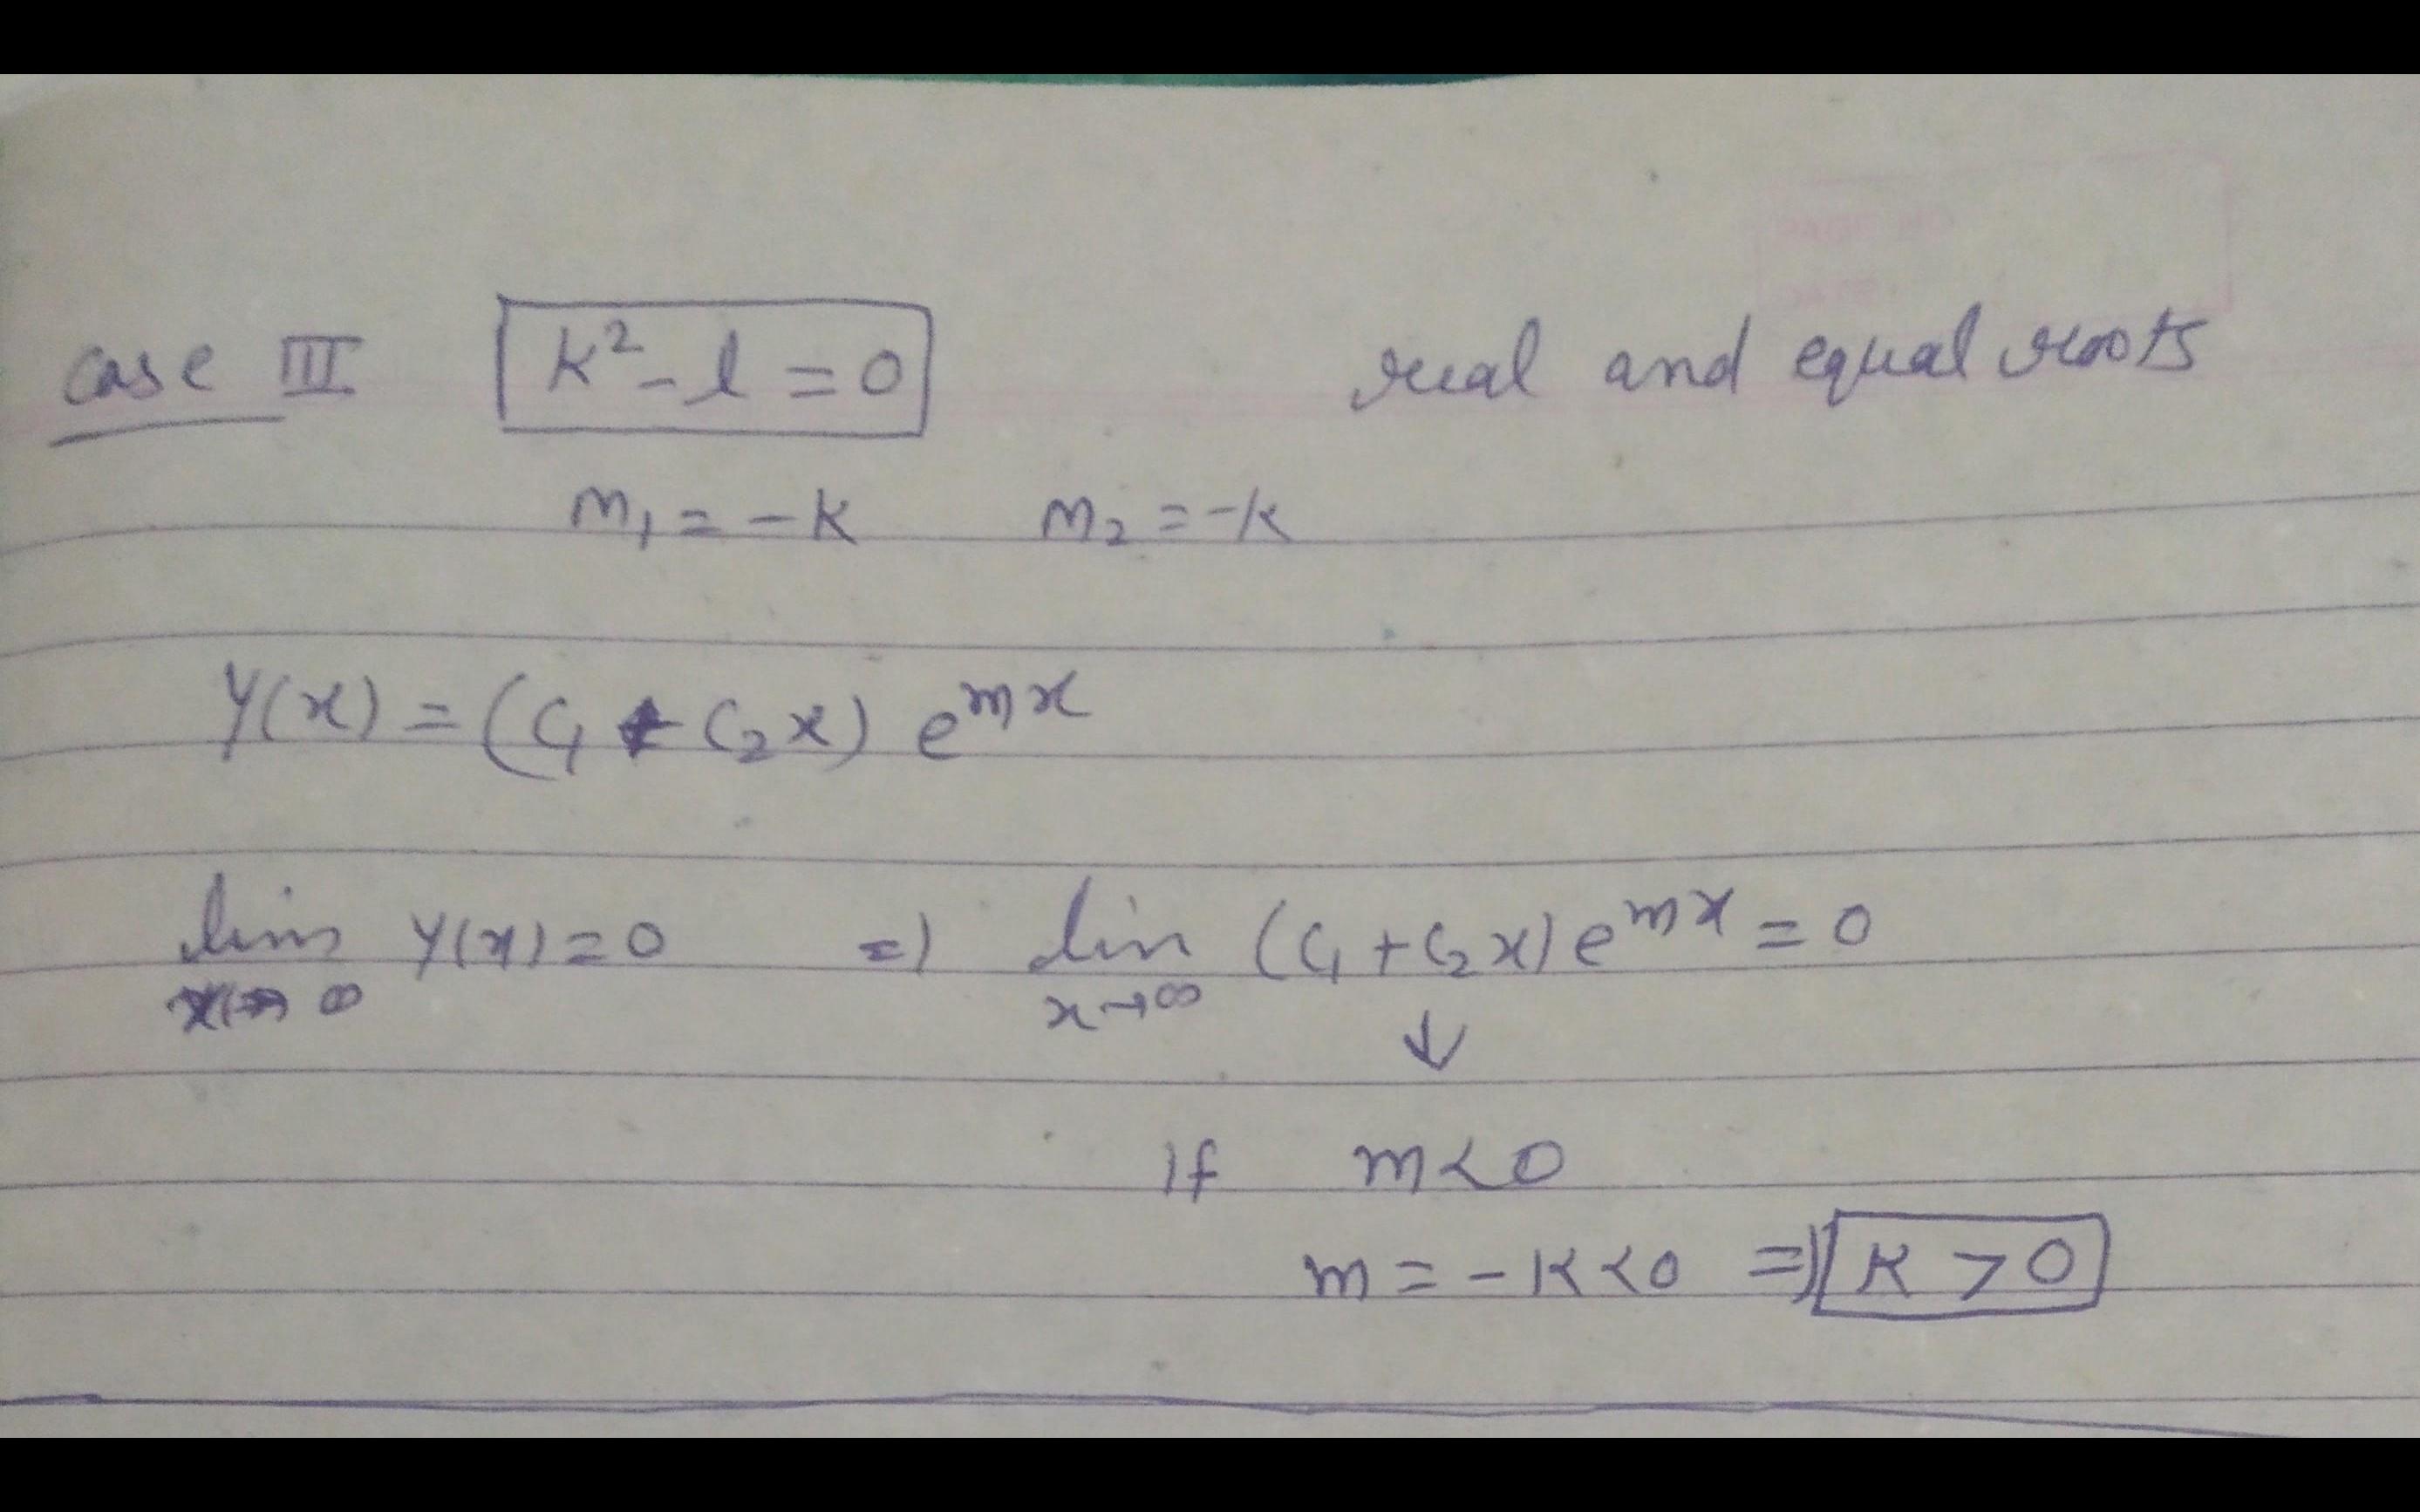 case III k² - l = 0 real and equal roots
m₁ = -k m₂ = -k
y(x) = (c₁ + c₂x) e^mx
lim x→∞ y(x) = 0 => lim x→∞ (c₁ + c₂x) e^mx = 0
↓
If m < 0
m = -k < 0 => k > 0